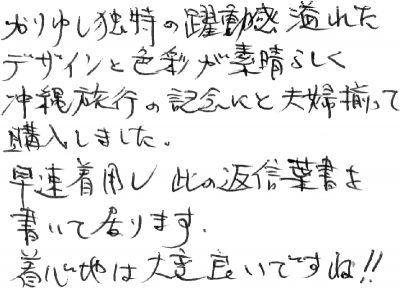 かりゆし独特の躍動感溢れた
デザインと色彩が素晴らしく
沖縄旅行の記念にと夫婦揃って
購入しました。
早速着用し 此の返信葉書を
書いて居ります.
着心地は大変良いですね!!